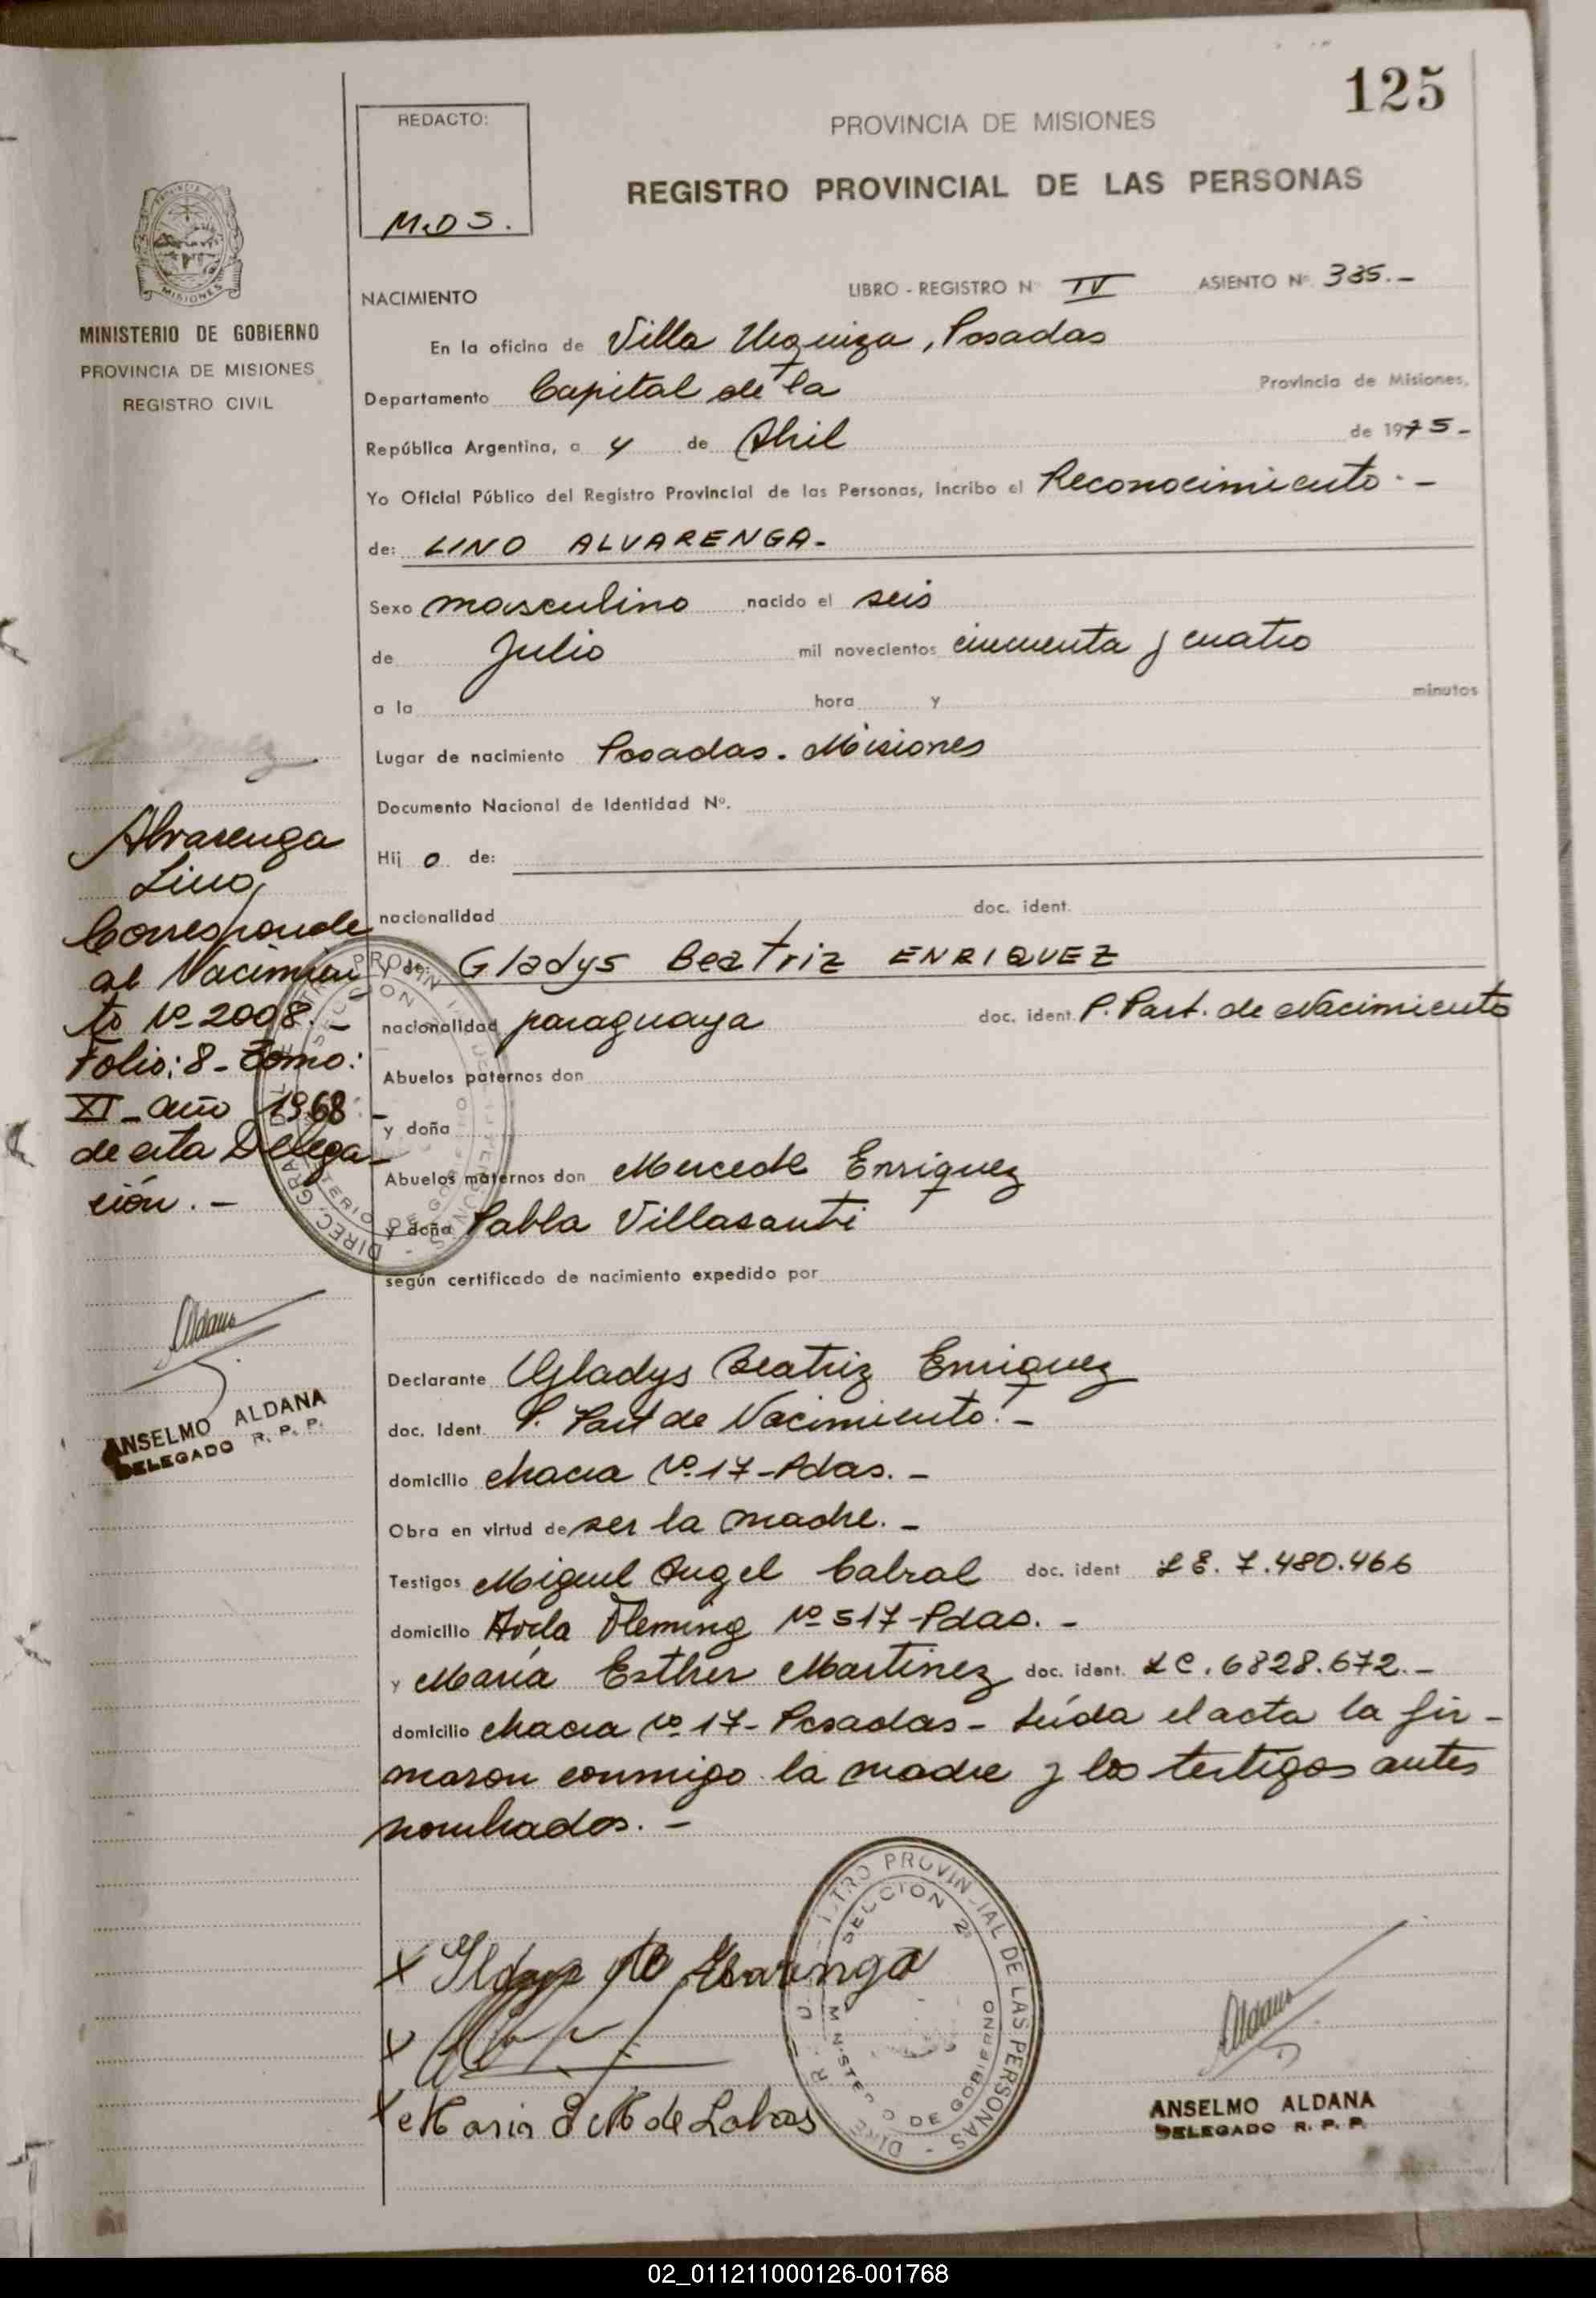 125
REDACTO:
M.D S.
PROVINCIA DE MISIONES
REGISTRO PROVINCIAL DE LAS PERSONAS
MISIONES
MINISTERIO DE GOBIERNO
PROVINCIA DE MISIONES
REGISTRO CIVIL
NACIMIENTO LIBRO - REGISTRO N IV ASIENTO Nº 335.-
En la oficina de Villa Urquiza, Posadas
Departamento Capital de la Provincia de Misiones,
República Argentina, a 4 de Abril de 1975-
Yo Oficial Público del Registro Provincial de las Personas, incribo el Reconocimiento.-
de: LINO ALVARENGA-
Sexo masculino nacido el seis
de Julio mil novecientos cincuenta y cuatro
a la hora y minutos
Lugar de nacimiento Posadas. Misiones
Documento Nacional de Identidad Nº.
Hij o de:
nacionalidad doc. ident.
y de: Gladys Beatriz ENRIQUEZ
nacionalidad paraguaya doc. ident. P. Part. de Nacimiento
Abuelos paternos don
y doña
Abuelos maternos don Mercede Enriquez
y doña Pabla Villasanti
según certificado de nacimiento expedido por
Declarante Gladys Beatriz Enriquez
doc. Ident. P. Part de Nacimiento.-
domicilio chacra Nº 17-Pdas.-
Obra en virtud de ser la madre.-
Testigos Miguel Angel Cabral doc. ident L E. 7.480.466
domicilio Avda Fleming Nº 517-Pdas.-
y María Esther Martinez doc. ident. L C. 6828.672.-
domicilio chacra Nº 17- Posadas- Leída el acta la fir-
maron conmigo la madre y los testigos antes
nombrados.-
Alvarenga
Lino
Corresponde
al Nacimien
to Nº 2008.-
Folio: 8- Tomo:
XI- año 1968-
de esta Delega-
ción.-
Aldana
ANSELMO ALDANA
DELEGADO R. P. P.
X
X
X Maria E M de Lobos
SECCION 2ª
PROVINCIAL DE LAS PERSONAS
DE GOBIERNO
Aldana
ANSELMO ALDANA
DELEGADO R. P. P.
02_011211000126-001768